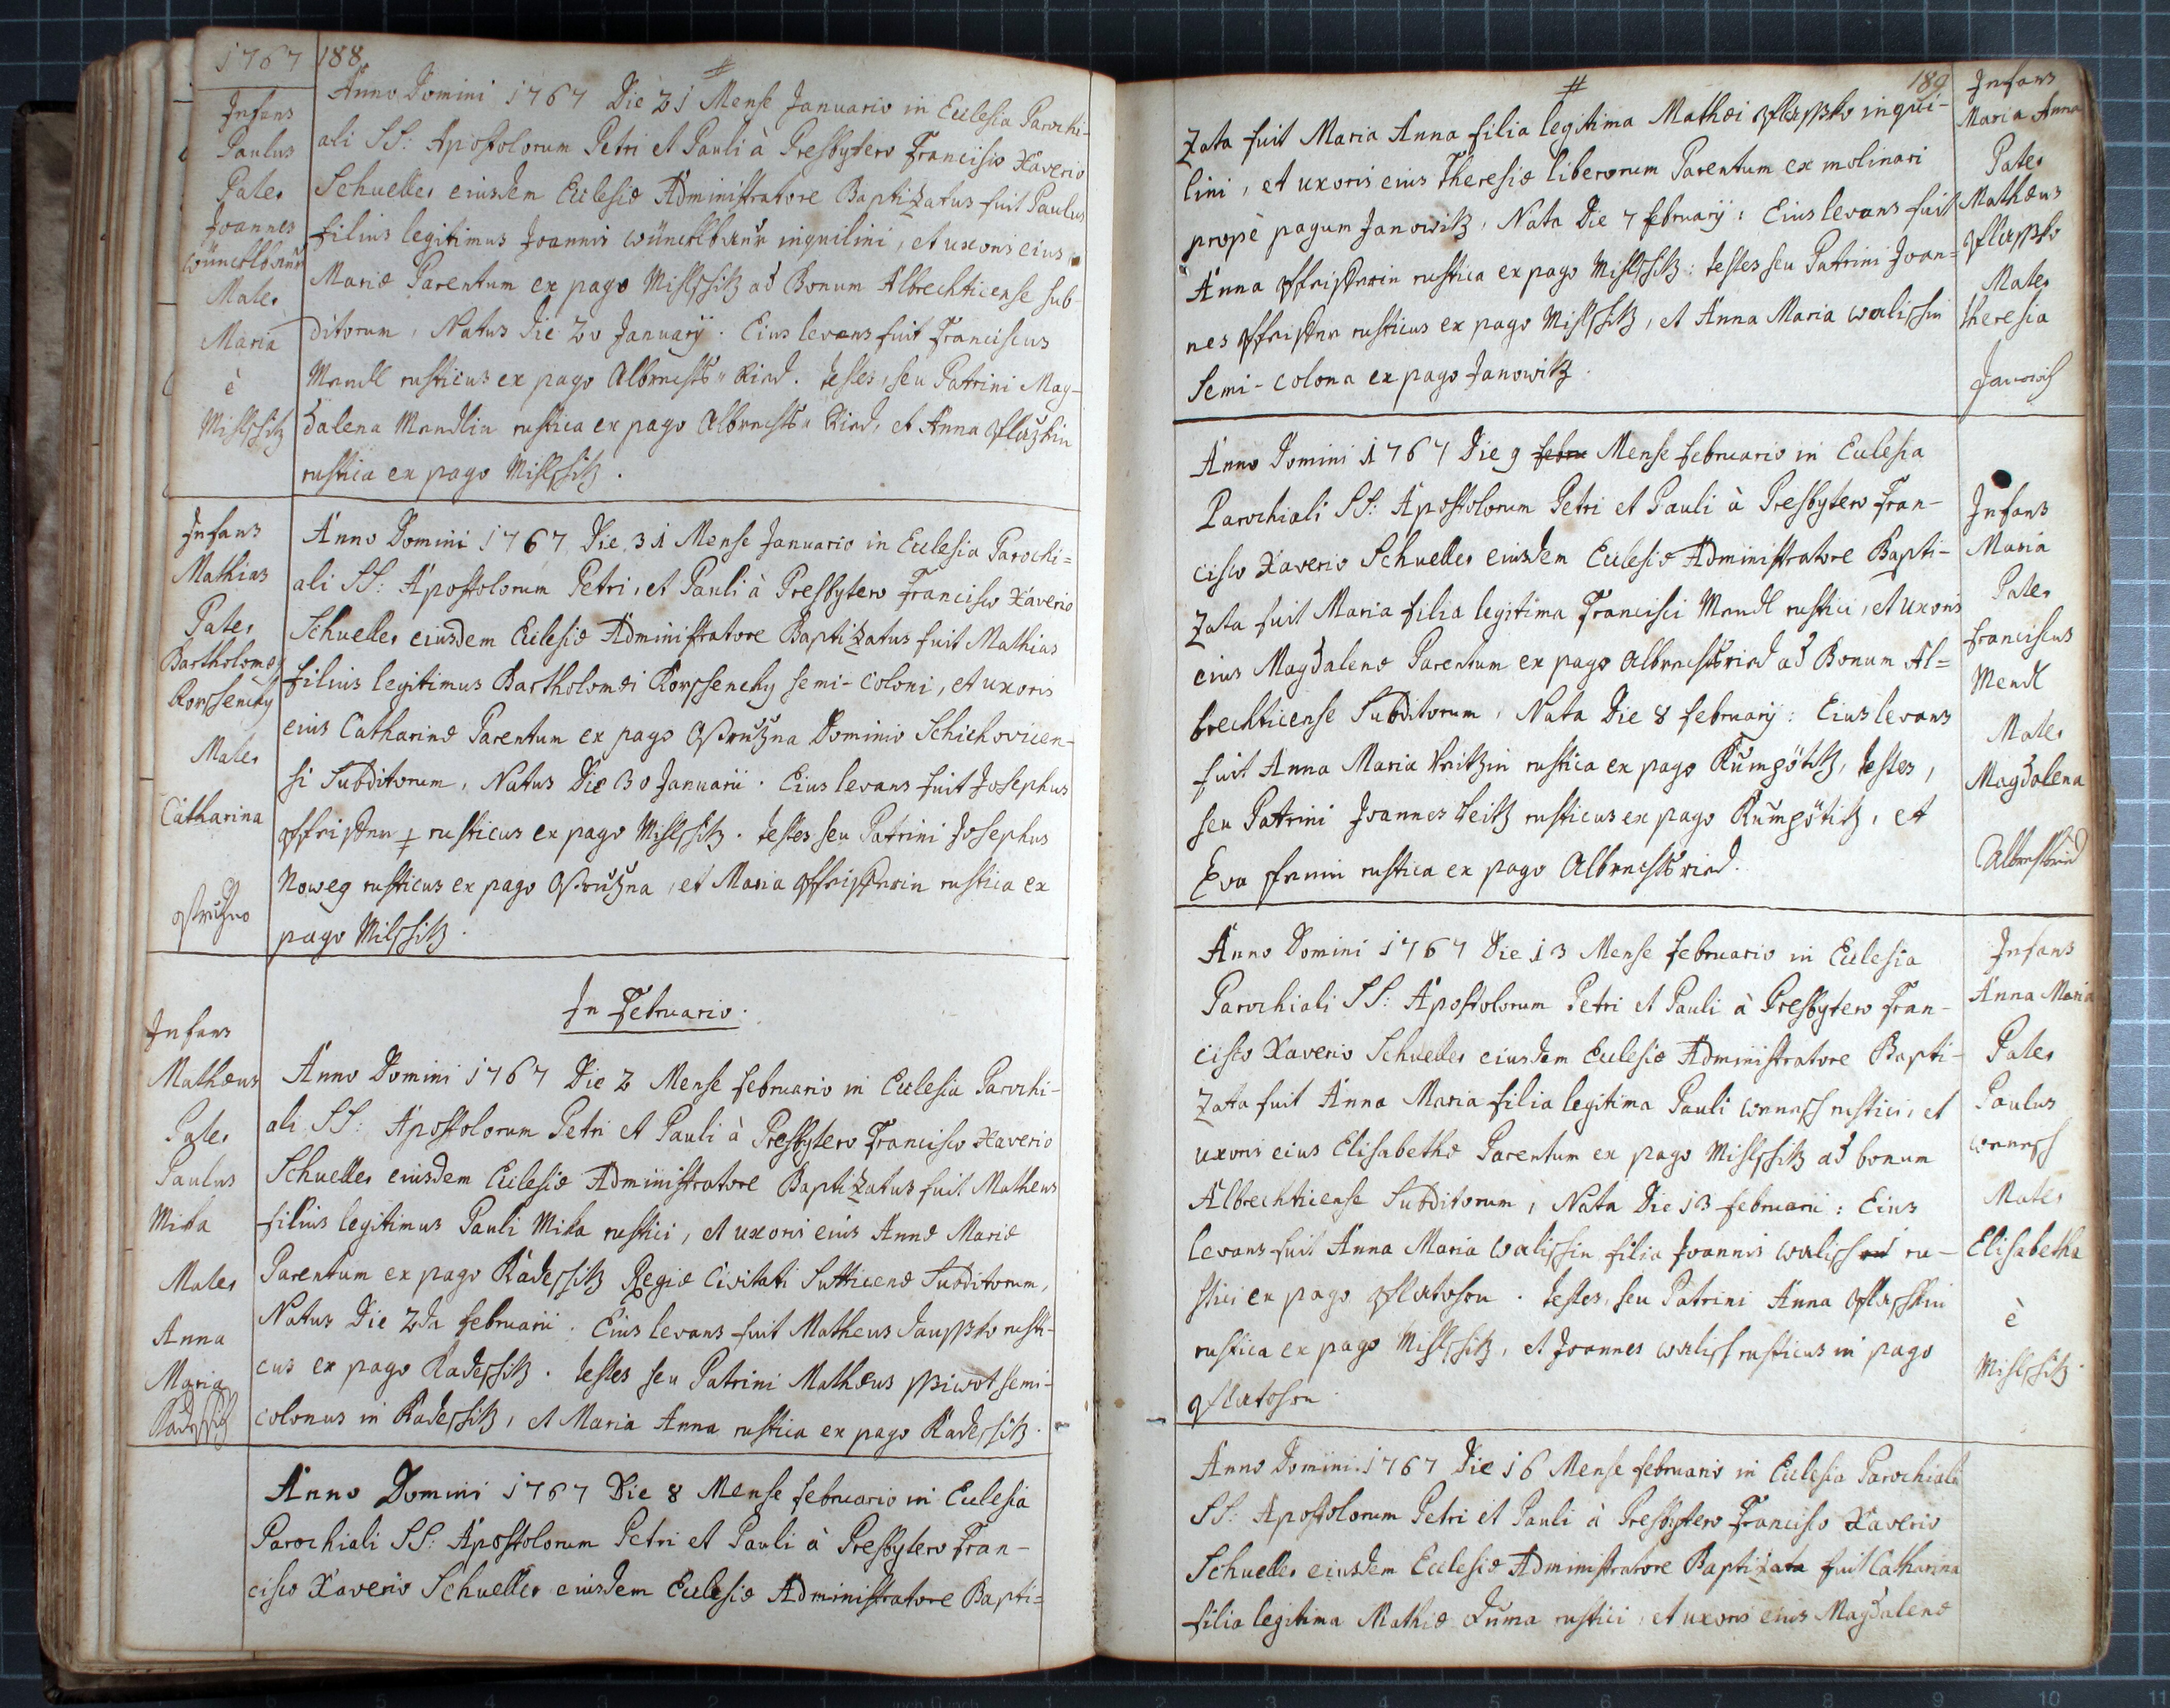 1767
188
#
Infans
Paulus
Pater
Joannes
Mater
Maria
è
Misljsitz
Anno Domini 1767 Die 21 Mense Januario in Ecclesia Parochi-
ali SS: Apostolorum Petri et Pauli à Presbytero Francisco Xaverio
Schueller eiusdem Ecclesiæ Administratore Baptizatus fuit Paulus
filius legitimus Joannis inquilini, et uxoris eius
Mariæ Parentum ex pago Misljsitz ad Bonum Albrechticense sub-
ditorum, Natus die 20 Januarij. Eius levans fuit Franciscus
Mendl rusticus ex pago Albrechts Ried. testes, seu Patrini Mag-
dalena Mendlin rustica ex pago Albrechts Ried, et Anna
rustica ex pago Misljsitz.
Infans
Mathias
Pater
Bartholomæ
Mater
Catharina
Anno Domini 1767 Die 31 Mense Januario in Ecclesia Parochi=
ali SS: Apostolorum Petri, et Pauli à Presbytero Francisco Xaverio
Schueller eiusdem Ecclesiæ Administratore Baptizatus fuit Mathias
filius legitimus Bartholomæi semi-coloni, et uxoris
eius Catharinæ Parentum ex pago Dominio Schichovicen-
si Subditorum, Natus Die 30 Januarii. Eius levans fuit Josephus
rusticus ex pago Misljsitz. testes seu Patrini Josephus
Noweg rusticus ex pago et Maria rustica ex
pago Miljsitz.
In Februario.
Infans
Mathæus
Pater
Paulus
Mika
Mater
Anna
Maria
Radejsitz
Anno Domini 1767 Die 2 Mense februario in Ecclesia Parochi-
ali SS: Apostolorum Petri et Pauli à Presbytero Francisco Xaverio
Schueller eiusdem Ecclesiæ Administratore Baptizatus fuit Matheus
filius legitimus Pauli Mika rustici, et uxoris eius Annæ Mariæ
Parentum ex pago Radejsitz Regiæ Civitati Sutticenæ Subditorum,
Natus Die 2da februarii. Eius levans fuit Matheus rusti-
cus ex pago Radejsitz. testes seu Patrini Mathæus semi-
colonus in Radejsitz, et Maria Anna rustica ex pago Radejsitz.
Anno Domini 1767 Die 8 Mense februario in Ecclesia
Parochiali SS: Apostolorum Petri et Pauli à Presbytero Fran-
cisco Xaverio Schueller eiusdem Ecclesiæ Administratore Bapti=
#
189
zata fuit Maria Anna filia legitima Mathæi inqui-
lini, et uxoris eius Theresiæ liberorum Parentum ex molinari
propè pagum Janowitz, Nata Die 7 februarij: Eius levans fuit
Anna rustica ex pago Misljsitz: testes seu Patrini Joan=
nes rusticus ex pago Misljsitz, et Anna Maria walissin
semi-colona ex pago Janowitz.
Infans
Maria Anna
Pater
Mathæus
Mater
theresia
Anno Domini 1767 Die 9 febru Mense februario in Ecclesia
Parochiali SS: Apostolorum Petri et Pauli à Presbytero Fran-
cisco Xaverio Schueller eiusdem Ecclesiæ Administratore Bapti-
zata fuit Maria filia legitima Francisci Mendl rustici, et uxoris
eius Magdalenæ Parentum ex pago Albrechtsried ad Bonum Al=
brechticense Subditorum, Nata Die 8 februarij: Eius levans
fuit Anna Maria Veitzin rustica ex pago Kumpötitz, testes,
seu Patrini Joannes Veitz rusticus ex pago Kumpötitz, et
Eva rustica ex pago Albrechtsried.
Infans
Maria
Pater
franciscus
Mendl
Mater
Magdalena
Anno Domini 1767 Die 13 Mense februario in Ecclesia
Parochiali SS: Apostolorum Petri et Pauli à Presbytero Fran-
cisco Xaverio Schueller eiusdem Ecclesiæ Administratore Bapti-
zata fuit Anna Maria filia legitima Pauli rustici, et
uxoris eius Elisabethæ Parentum ex pago Misljsitz ad bonum
Albrechticense Subditorum, Nata Die 13 februarii: Eius
levans fuit Anna Maria walissin filia Joannis waliss ru-
stici ex pago . testes, seu Patrini Anna
rustica ex pago Misljsitz, et Joannes waliss rusticus in pago
Infans
Anna Maria
Pater
Paulus
Mater
Elisabetha
è
Misljsitz
Anno Domini 1767 Die 16 Mense februario in Ecclesia Parochiali
SS: Apostolorum Petri et Pauli à Presbytero Francisco Xaverio
Schueller eiusdem Ecclesiæ Administratore Baptizata fuit Catharina
filia legitima Mathiæ Duma rustici, et uxoris eius Magdalenæ